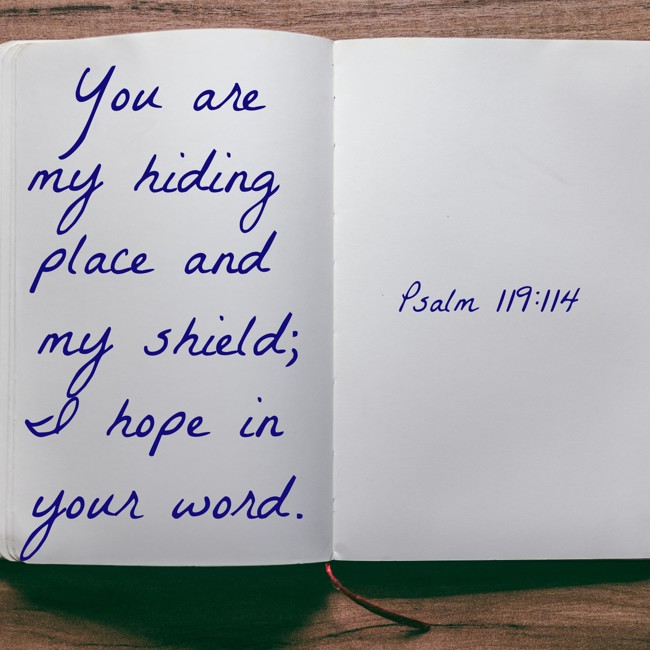 You are
my hiding
place and
my shield;
I hope in
your word.
Psalm 119:114